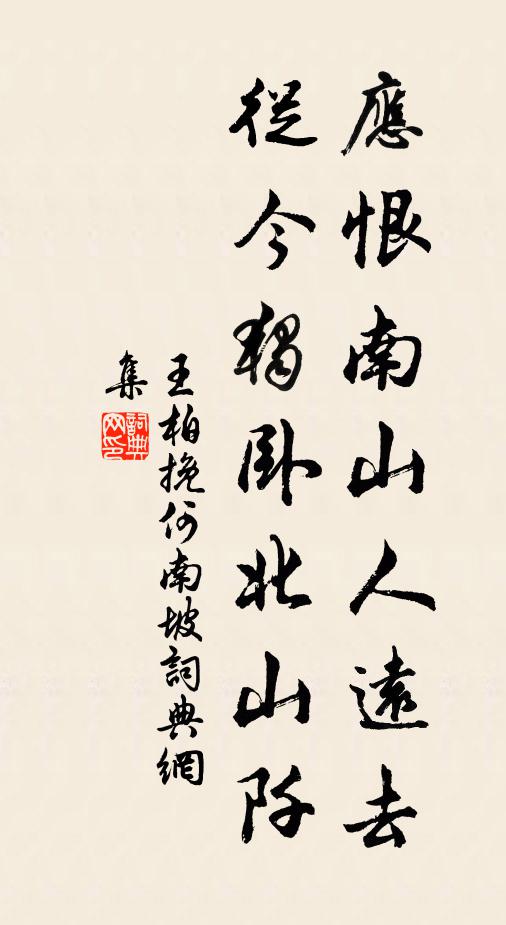 應恨南山人遠去
從今獨臥北山阡
王柏挽何南坡詞典網
集
詞典
网印